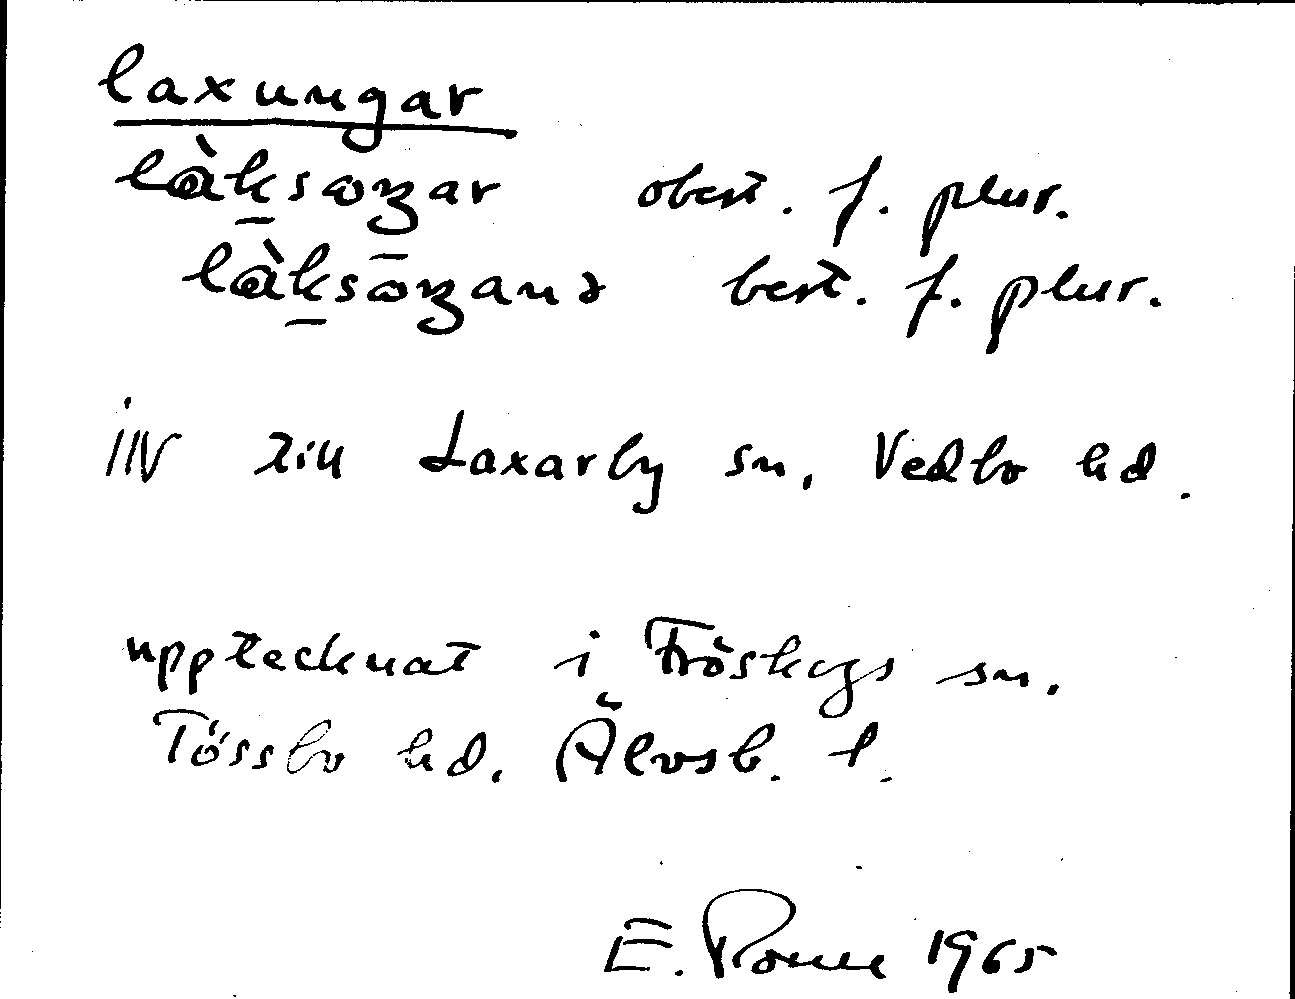 laxungar
làksωŋar obest. f. plur.
làksω̄ŋanə best. f. plur.
inv till Laxarby sn, Vedbo hd.
upptecknat i Fröskogs sn.
Tössbo hd. Älvsb. l.
E. 1965